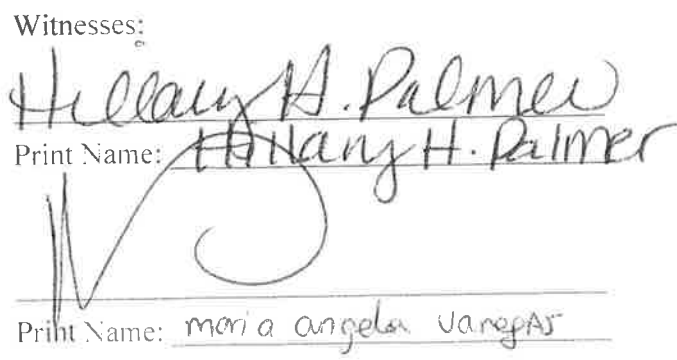 Witnesses:
Hillary H. Palmer
Print Name: Hillary H. Palmer
Print Name: maria angela Vanegas